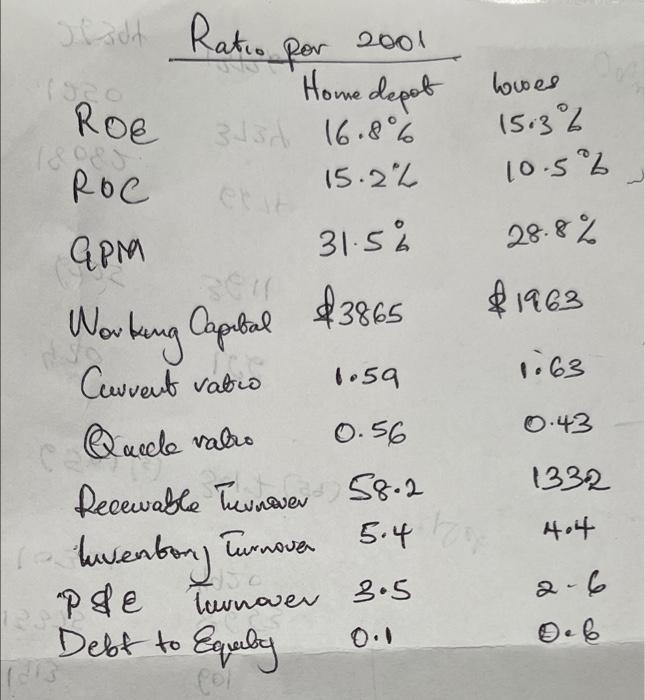 Ratio for 2001
Home depot lowes
ROE 16.8% 15.3%
ROC 15.2% 10.5%
GPM 31.5% 28.8%
Working Capital $3865 $1963
Current ratio 1.59 1.63
Quick ratio 0.56 0.43
Receivable Turnover 58.2 133.2
Inventory Turnover 5.4 4.4
P&E Turnover 3.5 2.6
Debt to Equity 0.1 0.6